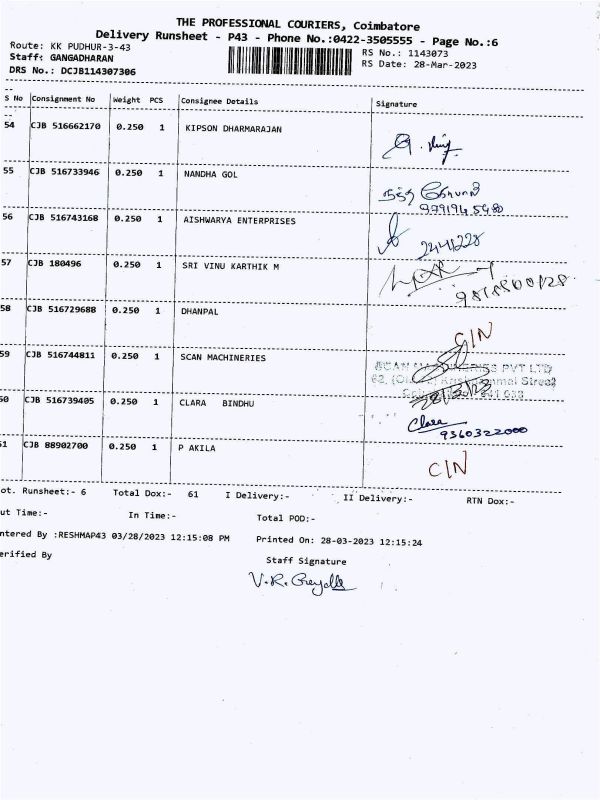 THE PROFESSIONAL COURIERS, Coimbatore
Delivery Runsheet - P43 - Phone No.:0422-3505555 - Page No.:6
Route: KK PUDHUR-3-43
RS No.: 1143073
Staff: GANGADHARAN
RS Date: 28-Mar-2023
DRS No.: DCJB114307306
S No Consignment No Weight PCS Consignee Details Signature
54 CJB 516662170 0.250 1 KIPSON DHARMARAJAN
55 CJB 516733946 0.250 1 NANDHA GOL
56 CJB 516743168 0.250 1 AISHWARYA ENTERPRISES
2441228
57 CJB 180496 0.250 1 SRI VINU KARTHIK M
58 CJB 516729688 0.250 1 DHANPAL
C/N
59 CJB 516744811 0.250 1 SCAN MACHINERIES
PVT LTD
28/3/23
60 CJB 516739405 0.250 1 CLARA BINDHU
Clara
9360322000
61 CJB 88902700 0.250 1 P AKILA
C/N
ot. Runsheet:- 6 Total Dox:- 61 I Delivery:- II Delivery:- RTN Dox:-
ut Time:- In Time:- Total POD:-
ntered By :RESHMAP43 03/28/2023 12:15:08 PM Printed On: 28-03-2023 12:15:24
erified By
Staff Signature